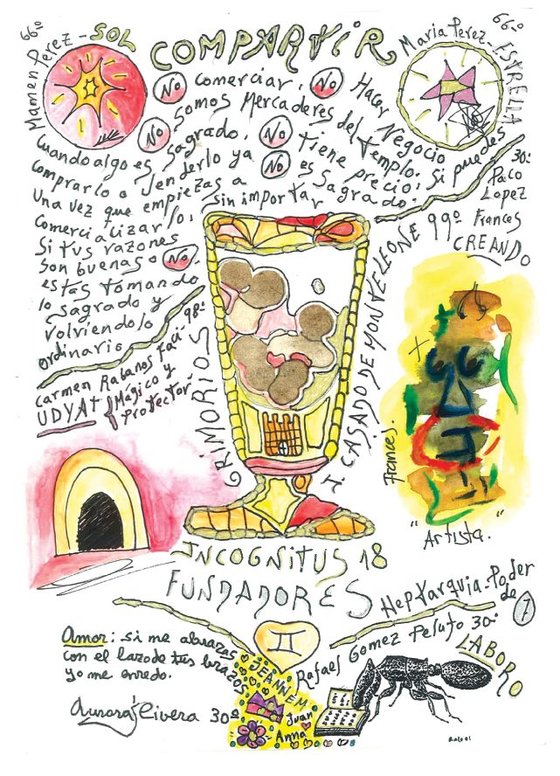 66º
Mamen Perez - SOL
COMPARTIR
Maria Perez - ESTRELLA
66º
No comerciar, No Hacer Negocio
No somos Mercaderes del Templo.
Cuando algo es sagrado, No tiene precio; si puedes
comprarlo o venderlo ya No es sagrado.
Una vez que empiezas a
comercializarlo, sin importar
si tus razones
son buenas o No,
estas tomando
lo sagrado y
volviendolo
ordinario
30º
Paco
Lopez
99º Frances
CREANDO
Carmen Rabanos Faci 98º
UDYAT { Mágico y
Protector
GRIMORIOS
M CASADO DE MONTELEONE
Frances J.
"Artista."
INCOGNITUS 18
FUNDADORES
Heptarquia - Poder
de 7
Rafael Gomez Peluto 30º
LABORO
Amor: si me abrazas
con el lazo de tus brazos
yo me enredo.
Aurora Rivera 30º
II
JEANNE M
Juan
Anna